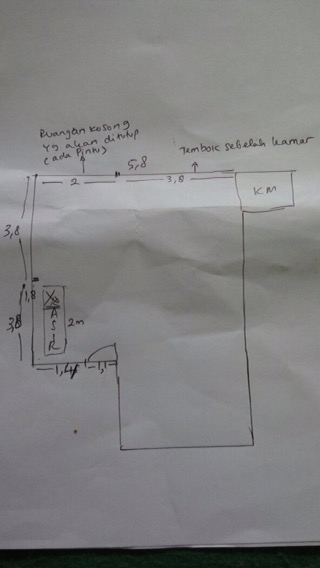 Ruangan kosong
yg akan ditutup
(ada Pintu)
5,8
Tembok sebelah kamar
2
3,8
KM
3,8
1,8
A
S
I
R
2m
3,8
1,4
1,1